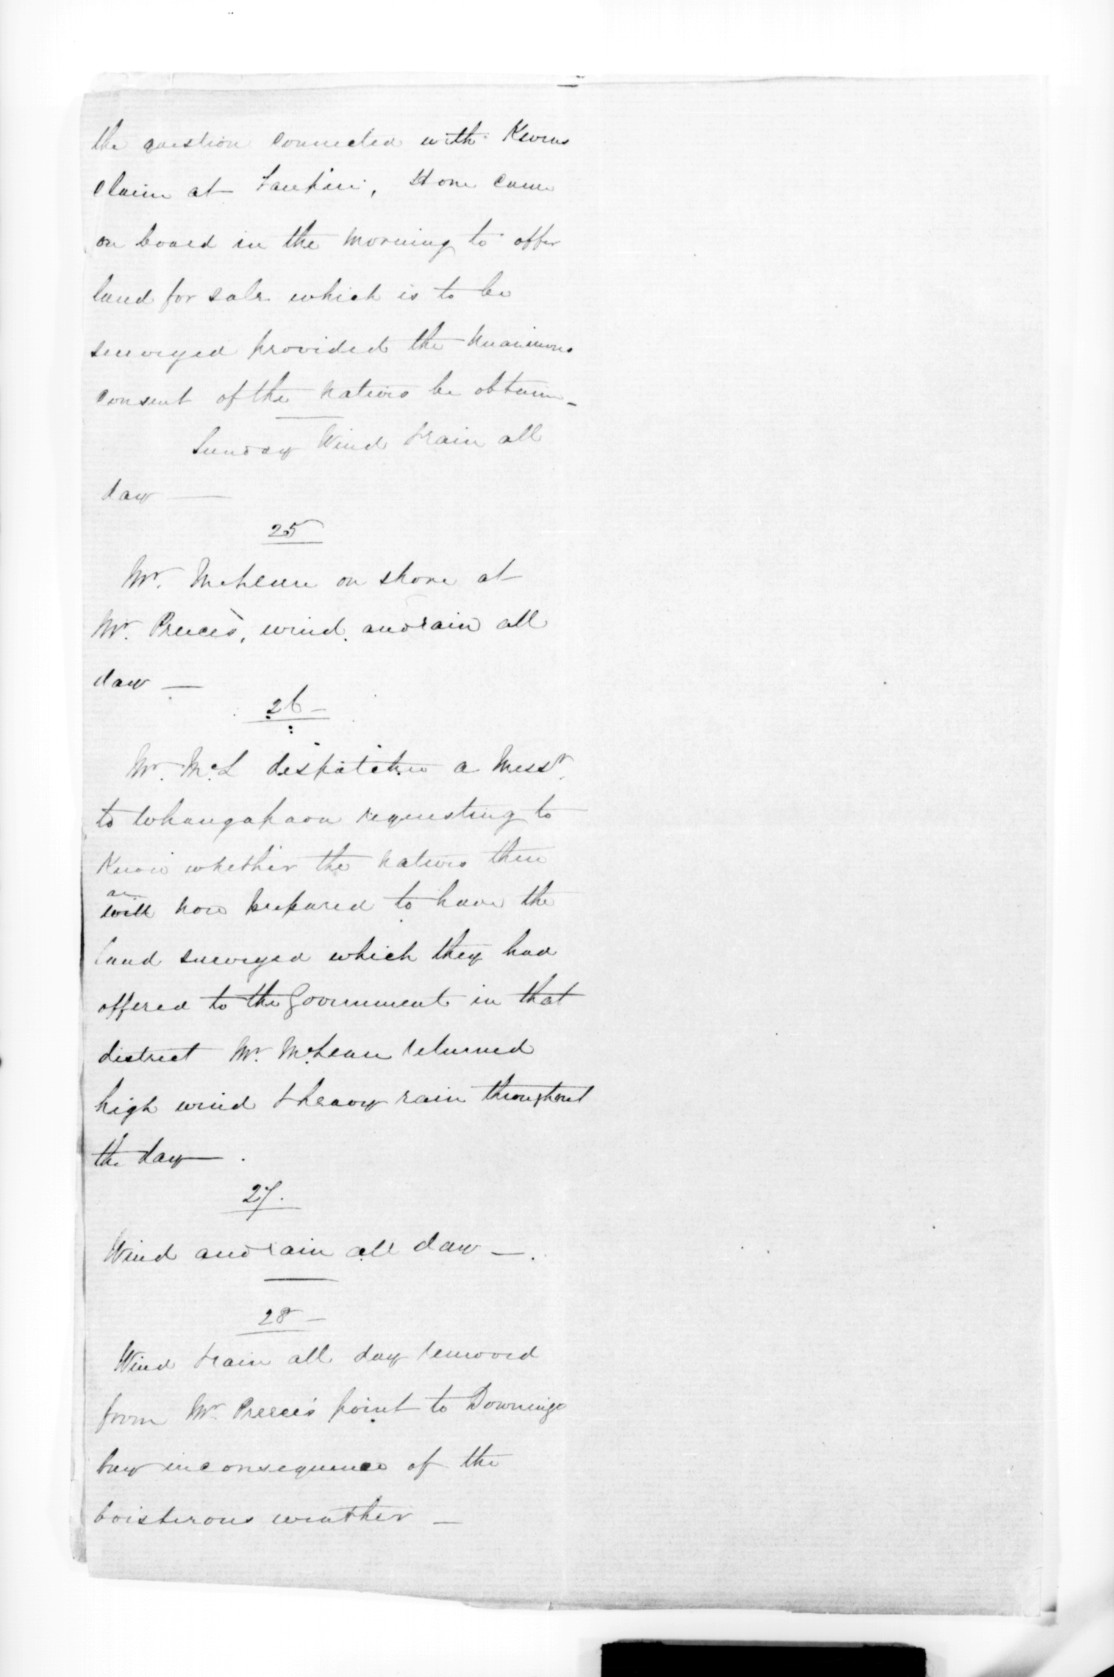 the question connected with
claim at came
on board in the morning to offer
land for sale which is to be
surveyed provided the unanimous
consent of the natives be obtain-
Sunday Wind & rain all
day —
25
Mr. McLean on shore at
Mr. Preece's, wind and rain all
day —
26 —
Mr. McL dispatched a Messr.
to Whangapaoa requesting to
know whether the natives there
are
will now prepared to have the
land surveyed which they had
offered to the Government in that
district Mr. McLean returned
high wind & heavy rain throughout
the day — .
27.
Wind and rain all day — .
28 —
Wind & rain all day removed
from Mr. Preece's point to Downings
bay in consequence of the
boisterous weather —